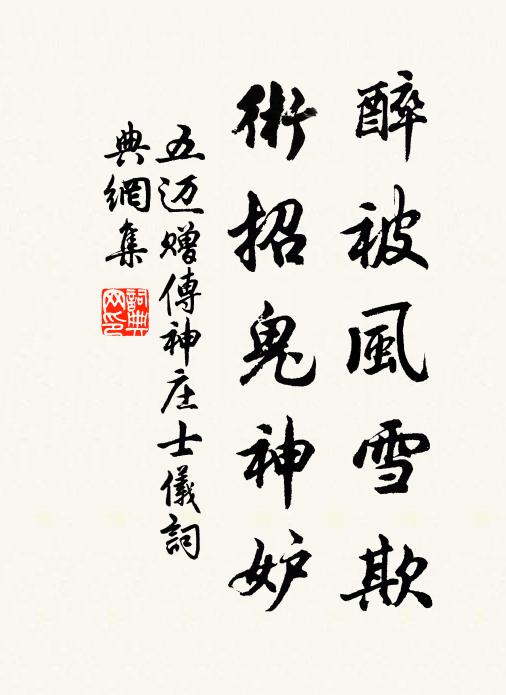 醉被風雪欺
術招鬼神妒
五迈赠傳神庄士儀詞
典網集
詞典
网印